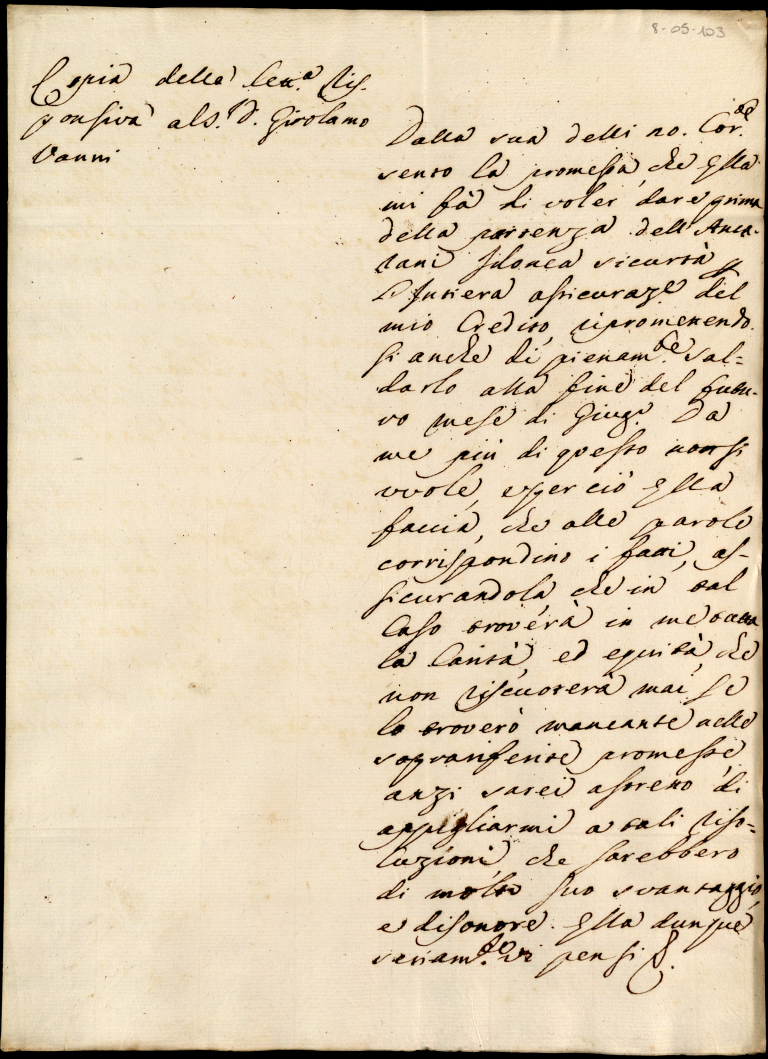 8-05-103
Copia della lett.a ris-
ponsiva al S. D. Girolamo
Vanni
Dalla sua delli 20. Cor.te
sento la promessa, che Ella
mi fà di voler dare prima
della partenza dell'Anca-
tani idonea sicurtà p
l'intiera assicuraz.e del
mio Credito, ripromettendo
si anche di pienam.te sal=
darlo alla fine del futu-
ro mese di Giug.o Da
me più di questo non si
vuole, e perciò Ella
faccia, che alle parole
corrispondino i fatti, as-
sicurandola che in tal
Caso troverà in me tutta
la Carità, ed equità, che
non riscuoterà mai, se
lo troverò mancante alle
sopranferite promesse
anzi sarei astretto di
appigliarmi a tali riso=
luzioni che sarebbero
di molto suo svantaggio,
e disonore. Ella dunque
seriam.te vi pensi